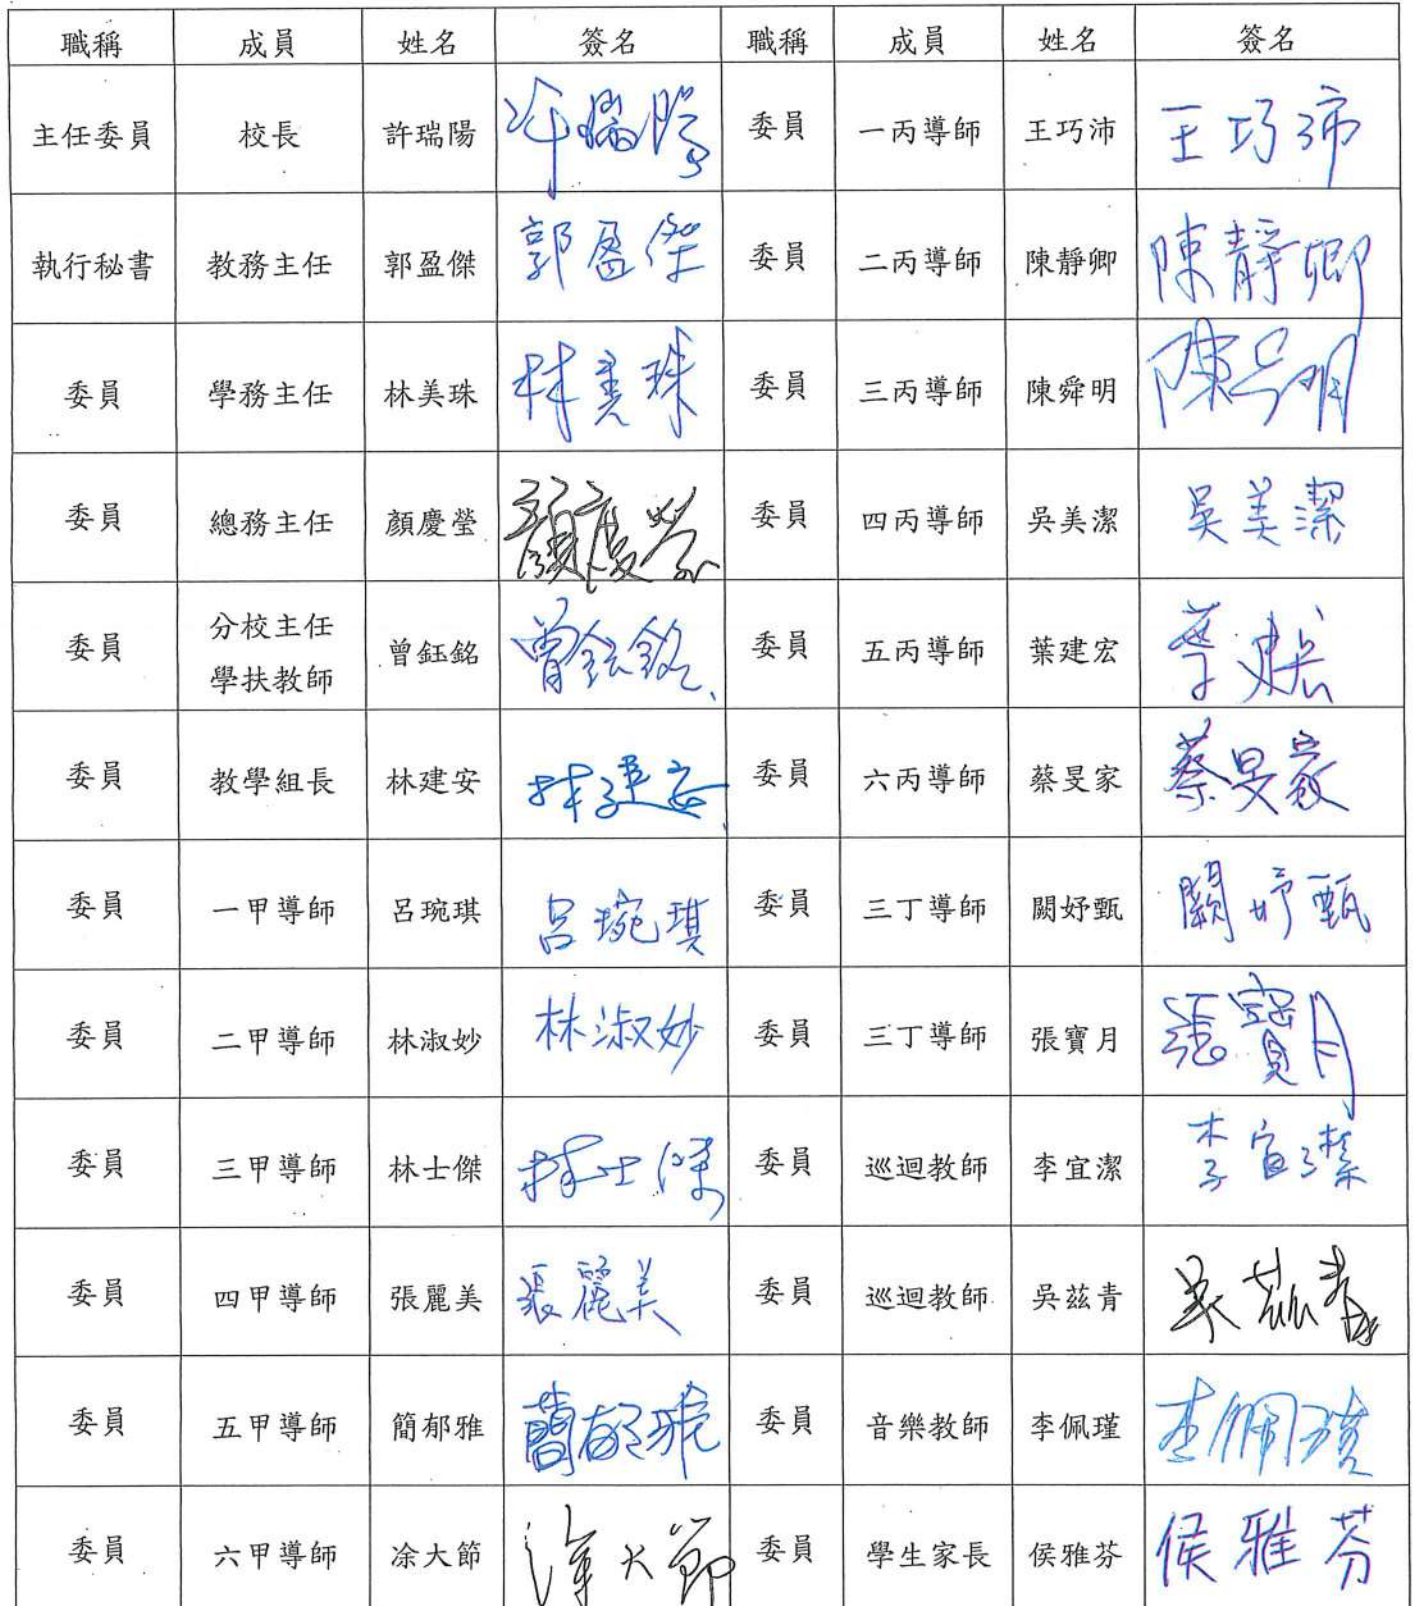 職稱 成員 姓名 簽名 職稱 成員 姓名 簽名
主任委員 校長 許瑞陽 許瑞陽 委員 一丙導師 王巧沛 王巧沛
執行秘書 教務主任 郭盈傑 郭盈傑 委員 二丙導師 陳靜卿 陳靜卿
委員 學務主任 林美珠 林美珠 委員 三丙導師 陳舜明 陳舜明
委員 總務主任 顏慶瑩 顏慶瑩 委員 四丙導師 吳美潔 吳美潔
委員 分校主任 學扶教師 曾鈺銘 曾鈺銘 委員 五丙導師 葉建宏 葉建宏
委員 教學組長 林建安 林建安 委員 六丙導師 蔡旻家 蔡旻家
委員 一甲導師 呂琬琪 呂琬琪 委員 三丁導師 闕妤甄 闕妤甄
委員 二甲導師 林淑妙 林淑妙 委員 三丁導師 張寶月 張寶月
委員 三甲導師 林士傑 林士傑 委員 巡迴教師 李宜潔 李宜潔
委員 四甲導師 張麗美 張麗美 委員 巡迴教師 吳茲青 吳茲青
委員 五甲導師 簡郁雅 簡郁雅 委員 音樂教師 李佩瑾 李佩瑾
委員 六甲導師 凃大節 凃大節 委員 學生家長 侯雅芬 侯雅芬